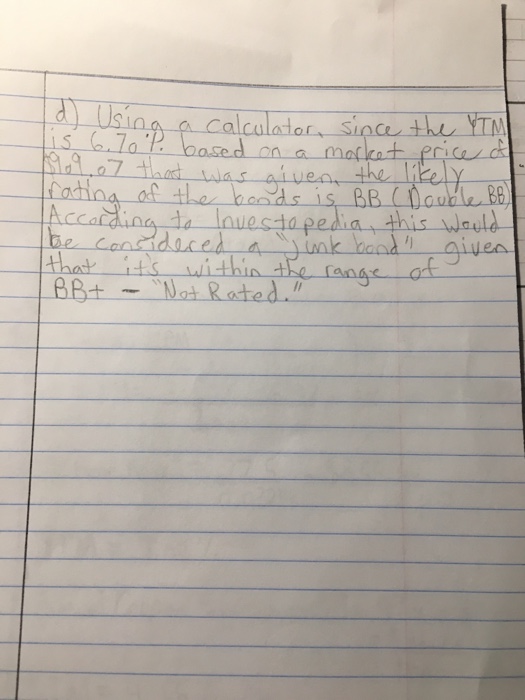 d) Using a calculator, since the YTM
is 6.70%. based on a market price of
$909.07 that was given, the likely
rating of the bonds is BB (Double BB)
According to Investopedia, this would
be considered a "junk bond", given
that it's within the range of
BB+ - "Not Rated."